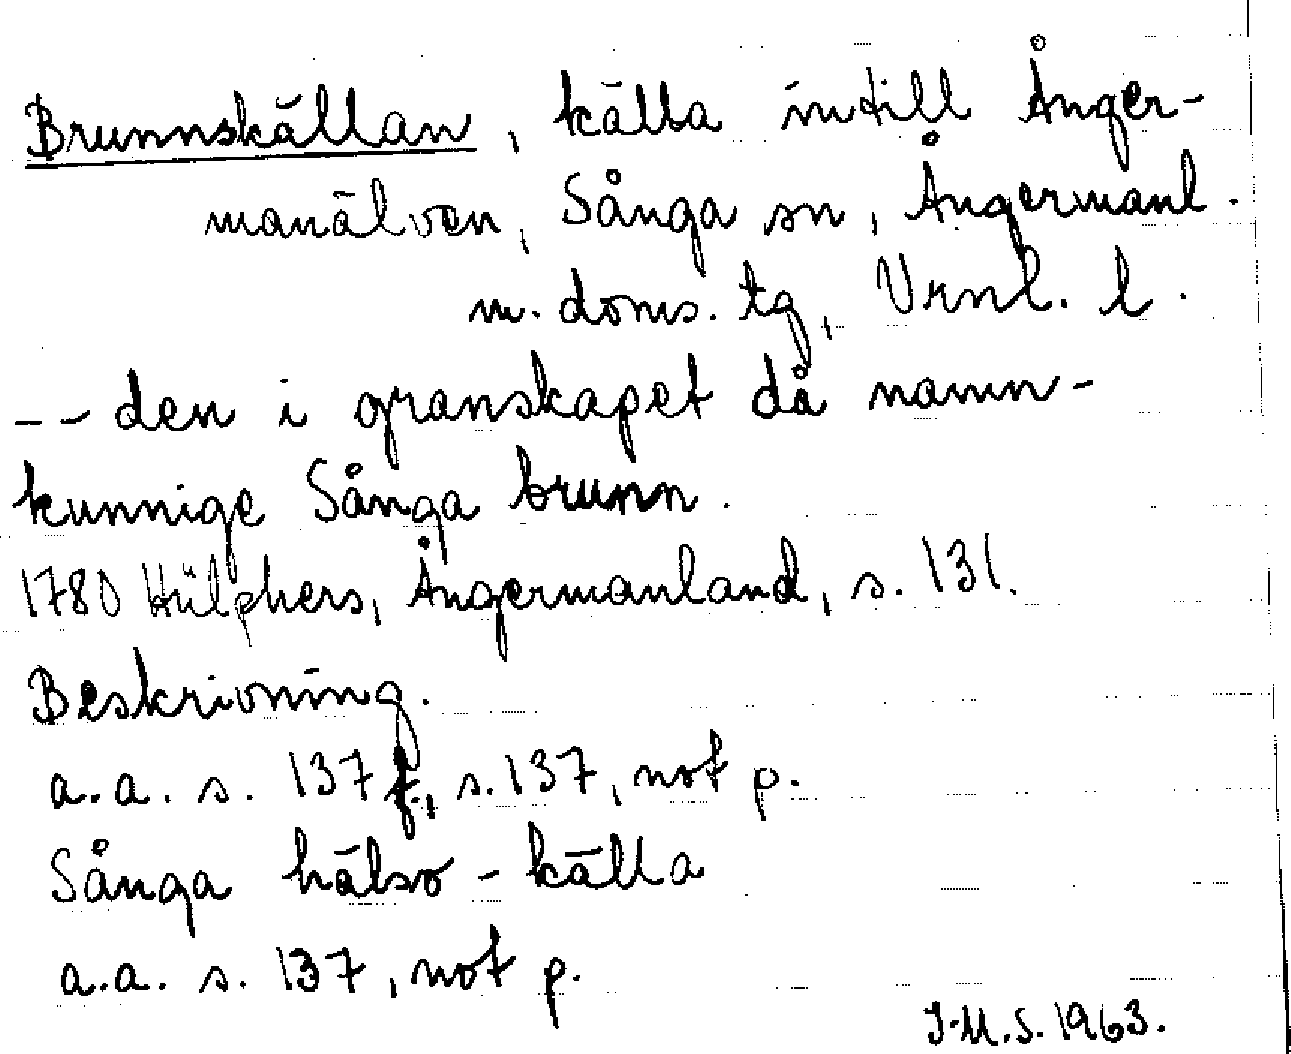 Brunnskällan, källa intill Ånger-
manälven, Sånga sn, Ångermanl.
m. doms. tg, Vrnl. l.
-- den i granskapet då namn-
kunnige Sånga brunn.
1780 Hülphers, Ångermanland, s. 131.
Beskrivning.
a.a. s. 137 f., s. 137, not p.
Sånga hälso-källa
a.a. s. 137, not p.
J.M.S. 1963.